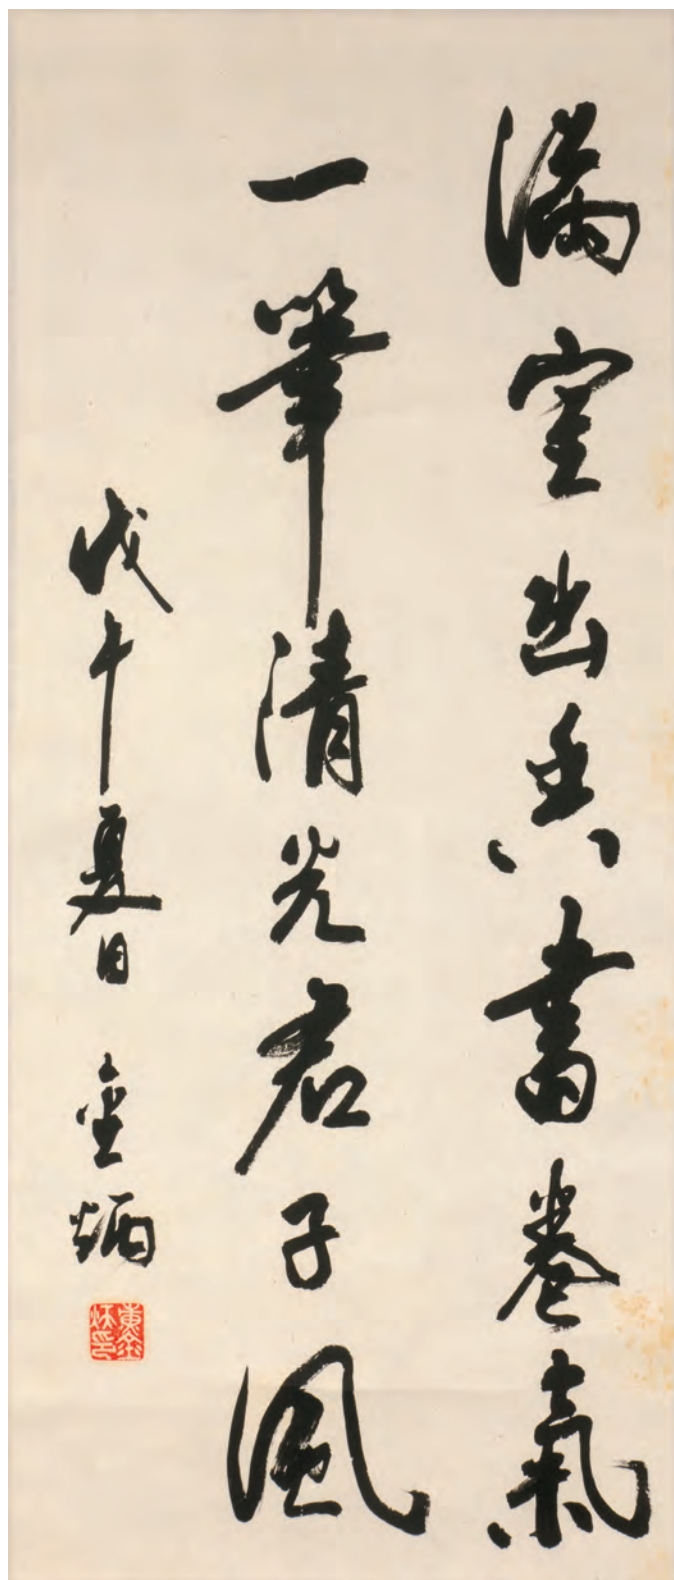 滿室幽香書卷氣
一筆清光君子風
戊午夏日 金炳